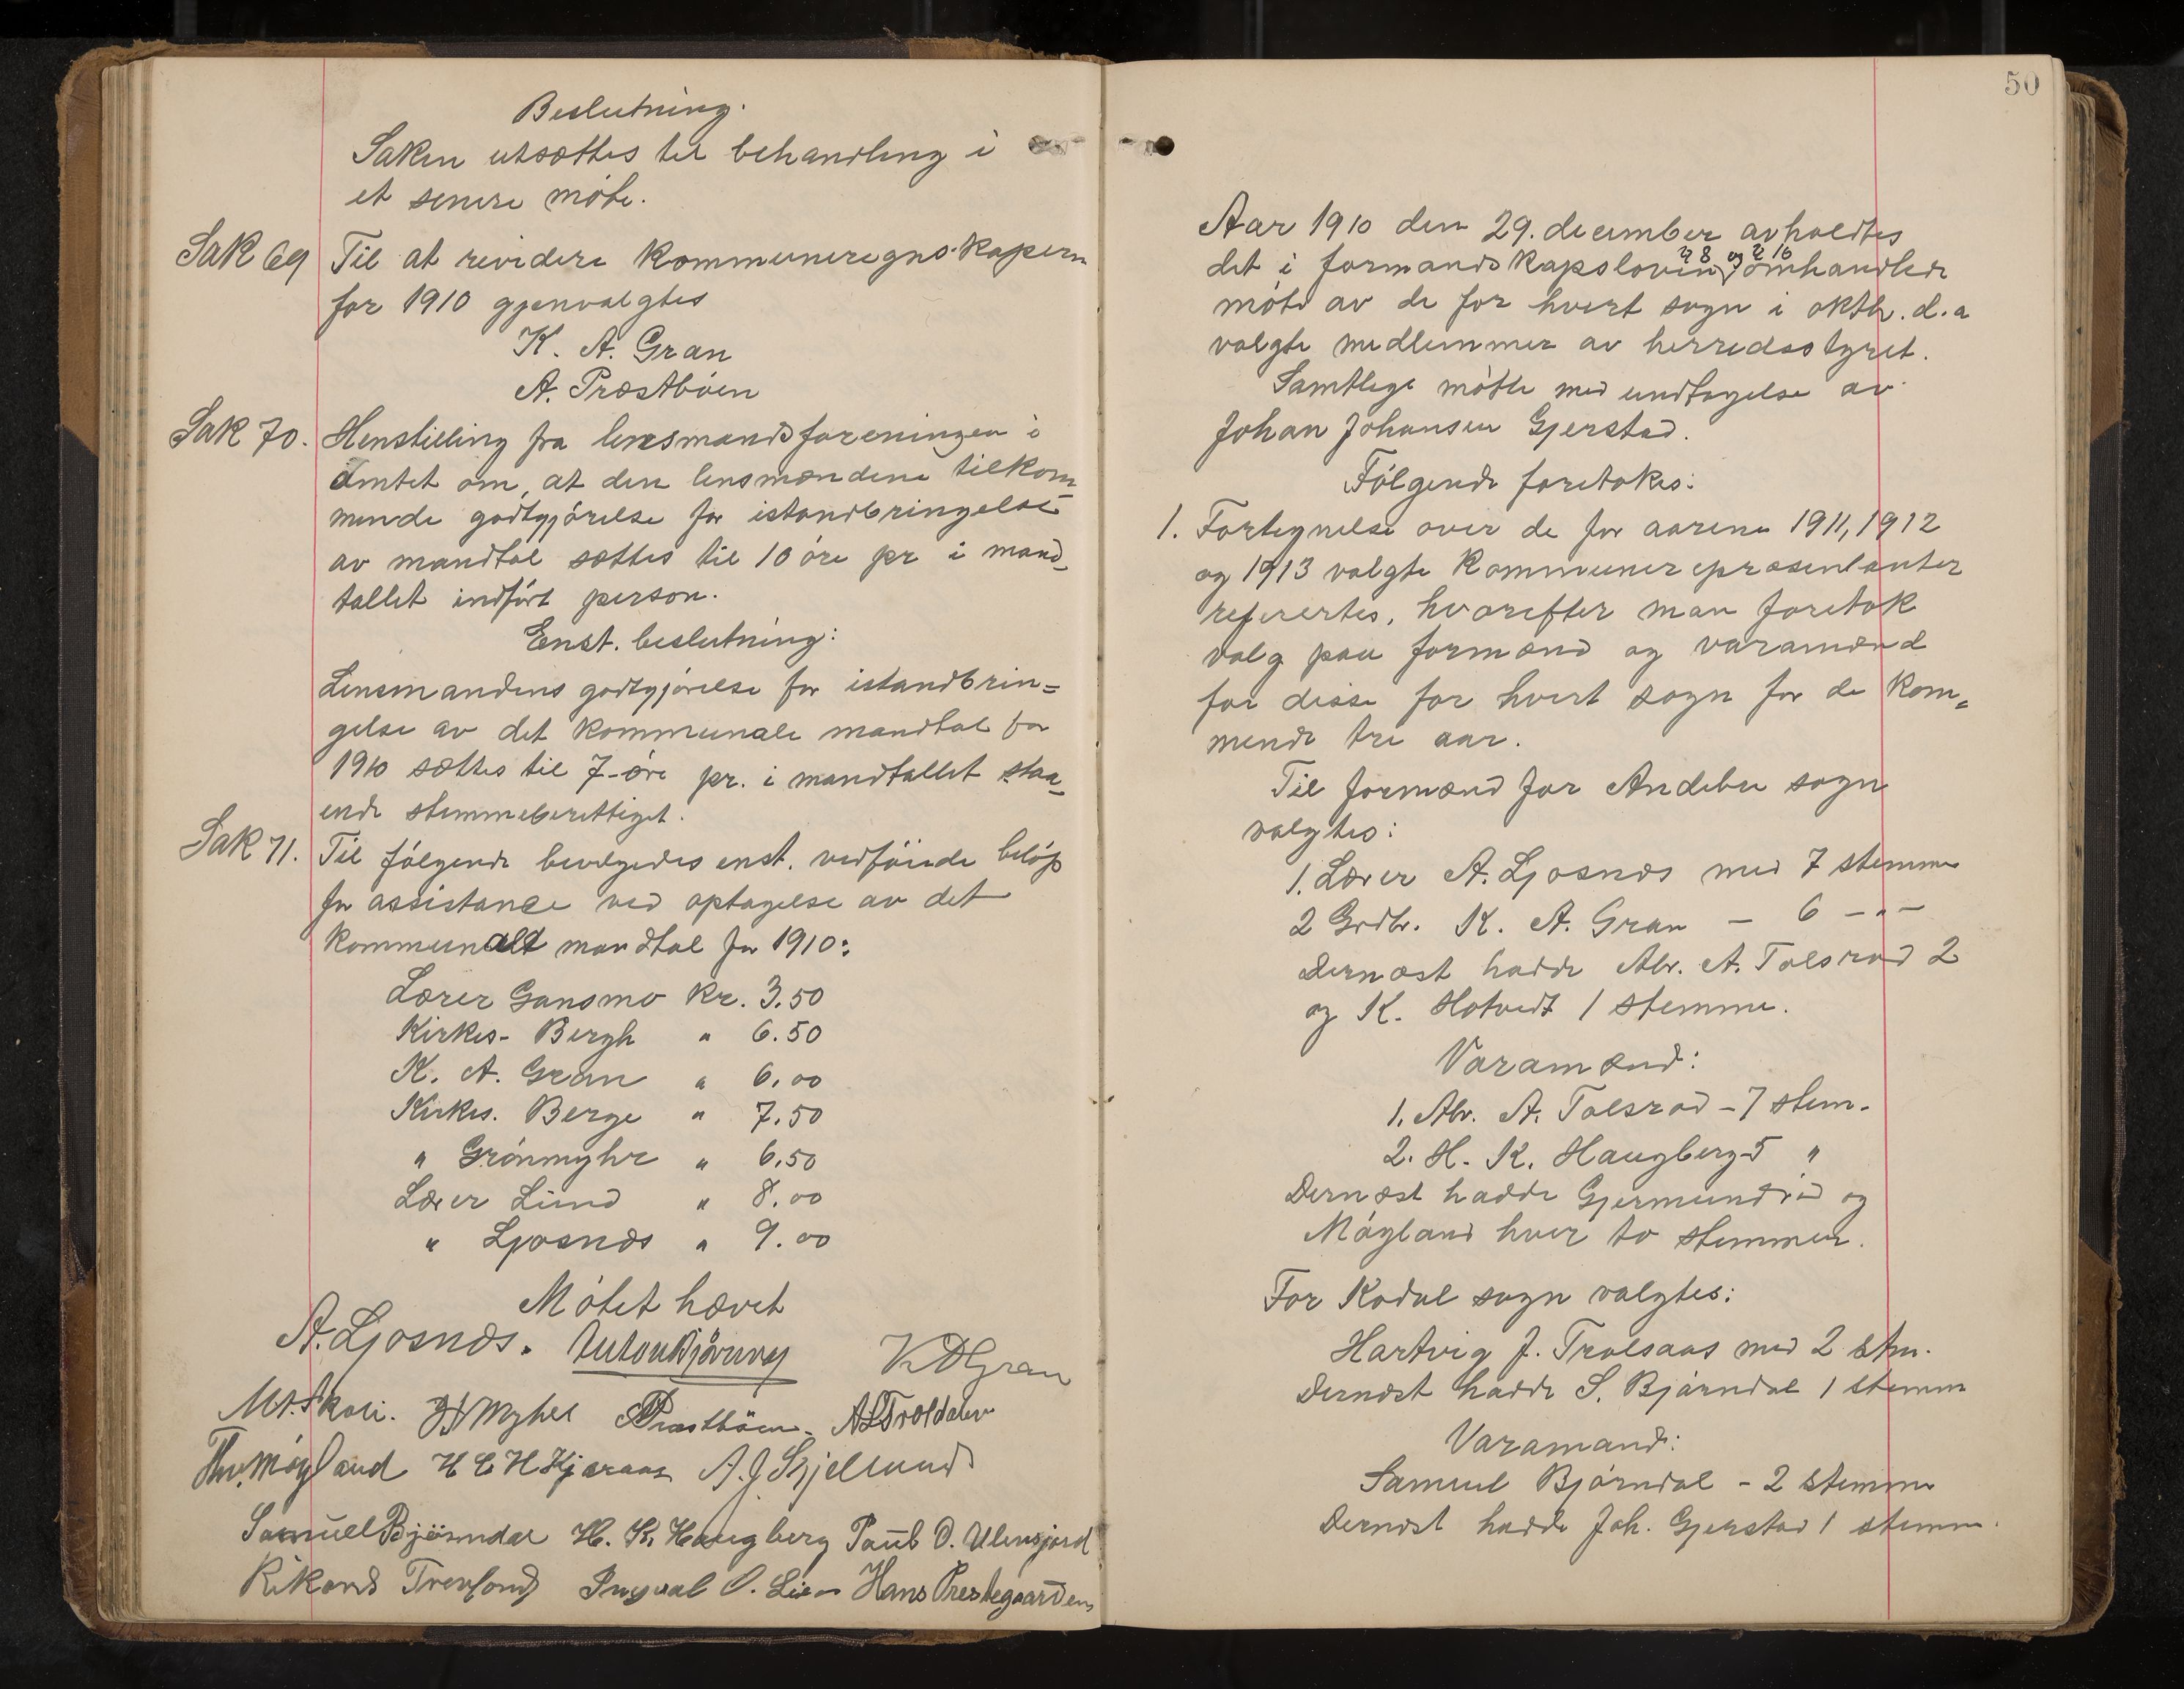 Beslutning.
Saken utsættes til behandling i
et senere møte.
Sak 69 Til at revidere kommuneregnskapern
for 1910 gjenvalgtes
K. A. Gran
A. Præstbøen
Sak 70. Henstilling fra lensmandsforeningen i
amtet om, at den lensmændene tilkom-
mende godtgjørelse for istandbringelse
av mandtal sættes til 10 øre pr i mand-
tallet indført person.
Enst. beslutning:
Lensmandens godtgjørelse for istandbrin=
gelse av det kommunale mandtal for
1910 sættes til 7-øre pr. i mandtallet staa-
ende stemmeberettiget.
Sak 71. Til følgende bevilgedes enst. vedføiede beløp
for assistance ved optagelse av det
kommunalt mandtal for 1910:
Lærer Gansmo kr. 3.50
Kirkes- Bergh " 6.50
K. A. Gran " 6.00
Kirkes. Berge " 7.50
" Grønmyhr " 6.50
Lærer Lund " 8.00
" Ljosnæs " 9.00
Møtet hævet
A. Ljosnæs. Anton Bjørnøy K A Gran
M. Skoli. Myhre A Præstbøen. A L Trolldalen
Thv. Møyland H C H Kjæraas A. J. Skjelland
Samuel Bjørndal H. K. Haugberg Paul O. Ulensjord
Rikard Trevland Ingval O. Lien Hans Prestegaarden
50
Aar 1910 den 29. december avholdtes
§ 8 og § 16
det i formandskapsloven omhandlede
møte av de for hvert sogn i oktbr. d. a
valgte medlemmer av herredsstyret.
Samtlige møtte med undtagelse av
Johan Johansen Gjerstad.
Følgende foretokes:
1. Fortegnelse over de for aarene 1911, 1912
og 1913 valgte kommunerepræsentanter
referertes, hvorefter man foretok
valg paa formænd og varamænd
for disse for hvert sogn for de kom=
mende tre aar.
Til formænd for Andebu sogn
valgtes:
1. Lærer A. Ljosnæs med 7 stemmer
2 Grdbr. K. A. Gran - 6 -"-
Dernæst hadde Abr. A. Tolsrød 2
og K. Hotvedt 1 stemme.
Varamænd:
1. Abr. A. Tolsrød - 7 stem.
2. H. K. Haugberg - 5 "
Dernæst hadde Gjermundrød og
Møyland hver to stemmer.
For Kodal sogn valgtes:
Hartvig J. Trolsaas med 2 stm.
Dernæst hadde S. Bjørndal 1 stemme
Varamand:
Samuel Bjørndal - 2 stemmer
Dernæst hadde Joh. Gjerstad 1 stemme.